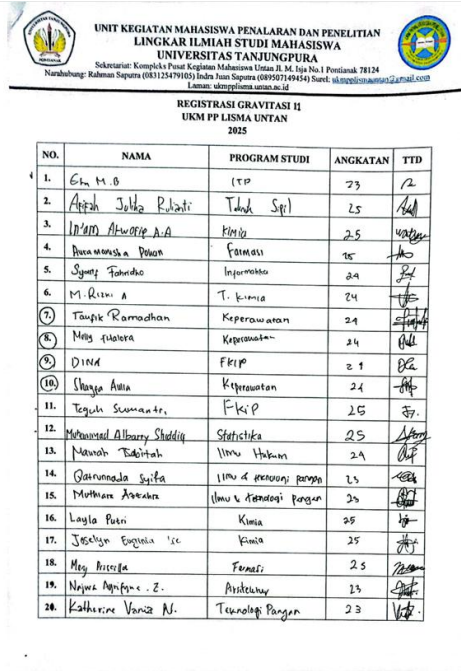 UNIT KEGIATAN MAHASISWA PENALARAN DAN PENELITIAN
LINGKAR ILMIAH STUDI MAHASISWA
UNIVERSITAS TANJUNGPURA
Sekretariat: Kompleks Pusat Kegiatan Mahasiswa Untan Jl. M. Isja No.1 Pontianak 78124
Narahubung: Rahman Saputra (083125479105) Indra Juan Saputra (089507149454) Surel: ukmpplismauntan@gmail.com
Laman: ukmpplisma.untan.ac.id
REGISTRASI GRAVITASI 11
UKM PP LISMA UNTAN
2025
NO. NAMA PROGRAM STUDI ANGKATAN TTD
1. M.B ITP 23
2. Afifah Julika Teknik Sipil 25
3. A.A Kimia 25
4. Farmasi 25
5. Informatika 24
6. M. Rizki A T. Kimia 24
7. Taufik Ramadhan Keperawatan 24
8. Melly Keperawatan 24
9. DINA FKIP 21
10. Shagya Aulia Keperawatan 24
11. Teguh Sumantri FKIP 25
12. Muhammad Albarry Shiddiq Statistika 25
13. Ilmu Hukum 24
14. Qatrunnada Syifa Ilmu & teknologi pangan 23
15. Muthiara Azzahra Ilmu & teknologi pangan 23
16. Layla Putri Kimia 25
17. Joselyn Euginia Kimia 25
18. Farmasi 25
19. Najwa Arsitektur 23
20. Katherine Vania N. Teknologi Pangan 23